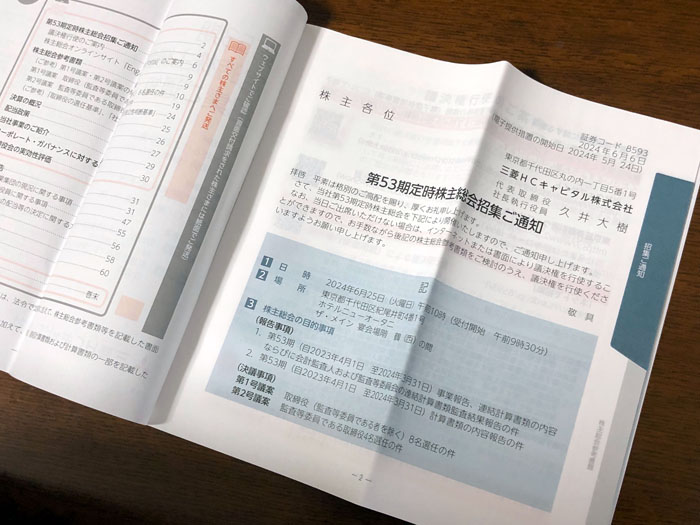 第53期定時株主総会招集ご通知
議決権行使のご案内
株主総会オンラインサイト「Eng
株主総会参考書類
決算の概況
配当政策
当社事業のご紹介
ーポレート・ガバナンスに対する
締役会の実効性評価
2
4
6
9
10
19
24
25
26
27
30
30
31
31
47
55
56
58
60
巻末
すべての株主さまへご発送
は、法令で認め
株主総会参考書類等を記載した書面
計算書類の一部を記載した
株主各位
証券コード 8593
2024年6月6日
(電子提供措置の開始日 2024年5月24日)
東京都千代田区丸の内一丁目5番1号
三菱HCキャピタル株式会社
代表取締役
社長執行役員 久井大樹
第53期定時株主総会招集ご通知
拝啓 平素は格別のご高配を賜り、厚くお礼申し上げます。
さて、当社第53期定時株主総会を下記により開催いたしますので、ご通知申し上げます。
なお、当日ご出席いただけない場合は、インターネットまたは書面により議決権を行使するこ
とができますので、お手数ながら後記の株主総会参考書類をご検討のうえ、議決権を行使くださ
いますようお願い申し上げます。
敬具
記
1 日時 2024年6月25日(火曜日)午前10時(受付開始 午前9時30分)
2 場所 東京都千代田区紀尾井町4番1号
ホテルニューオータニ
ザ・メイン 宴会場階 の間
3 株主総会の目的事項
(報告事項)
1. 第53期(自2023年4月1日 至2024年3月31日)事業報告、連結計算書類の内容
ならびに会計監査人および監査等委員会の連結計算書類監査結果報告の件
2. 第53期(自2023年4月1日 至2024年3月31日)計算書類の内容報告の件
(決議事項)
第1号議案 取締役(監査等委員である者を除く)8名選任の件
第2号議案 監査等委員である取締役4名選任の件
招集ご通知
株主総会参考書類
-2-